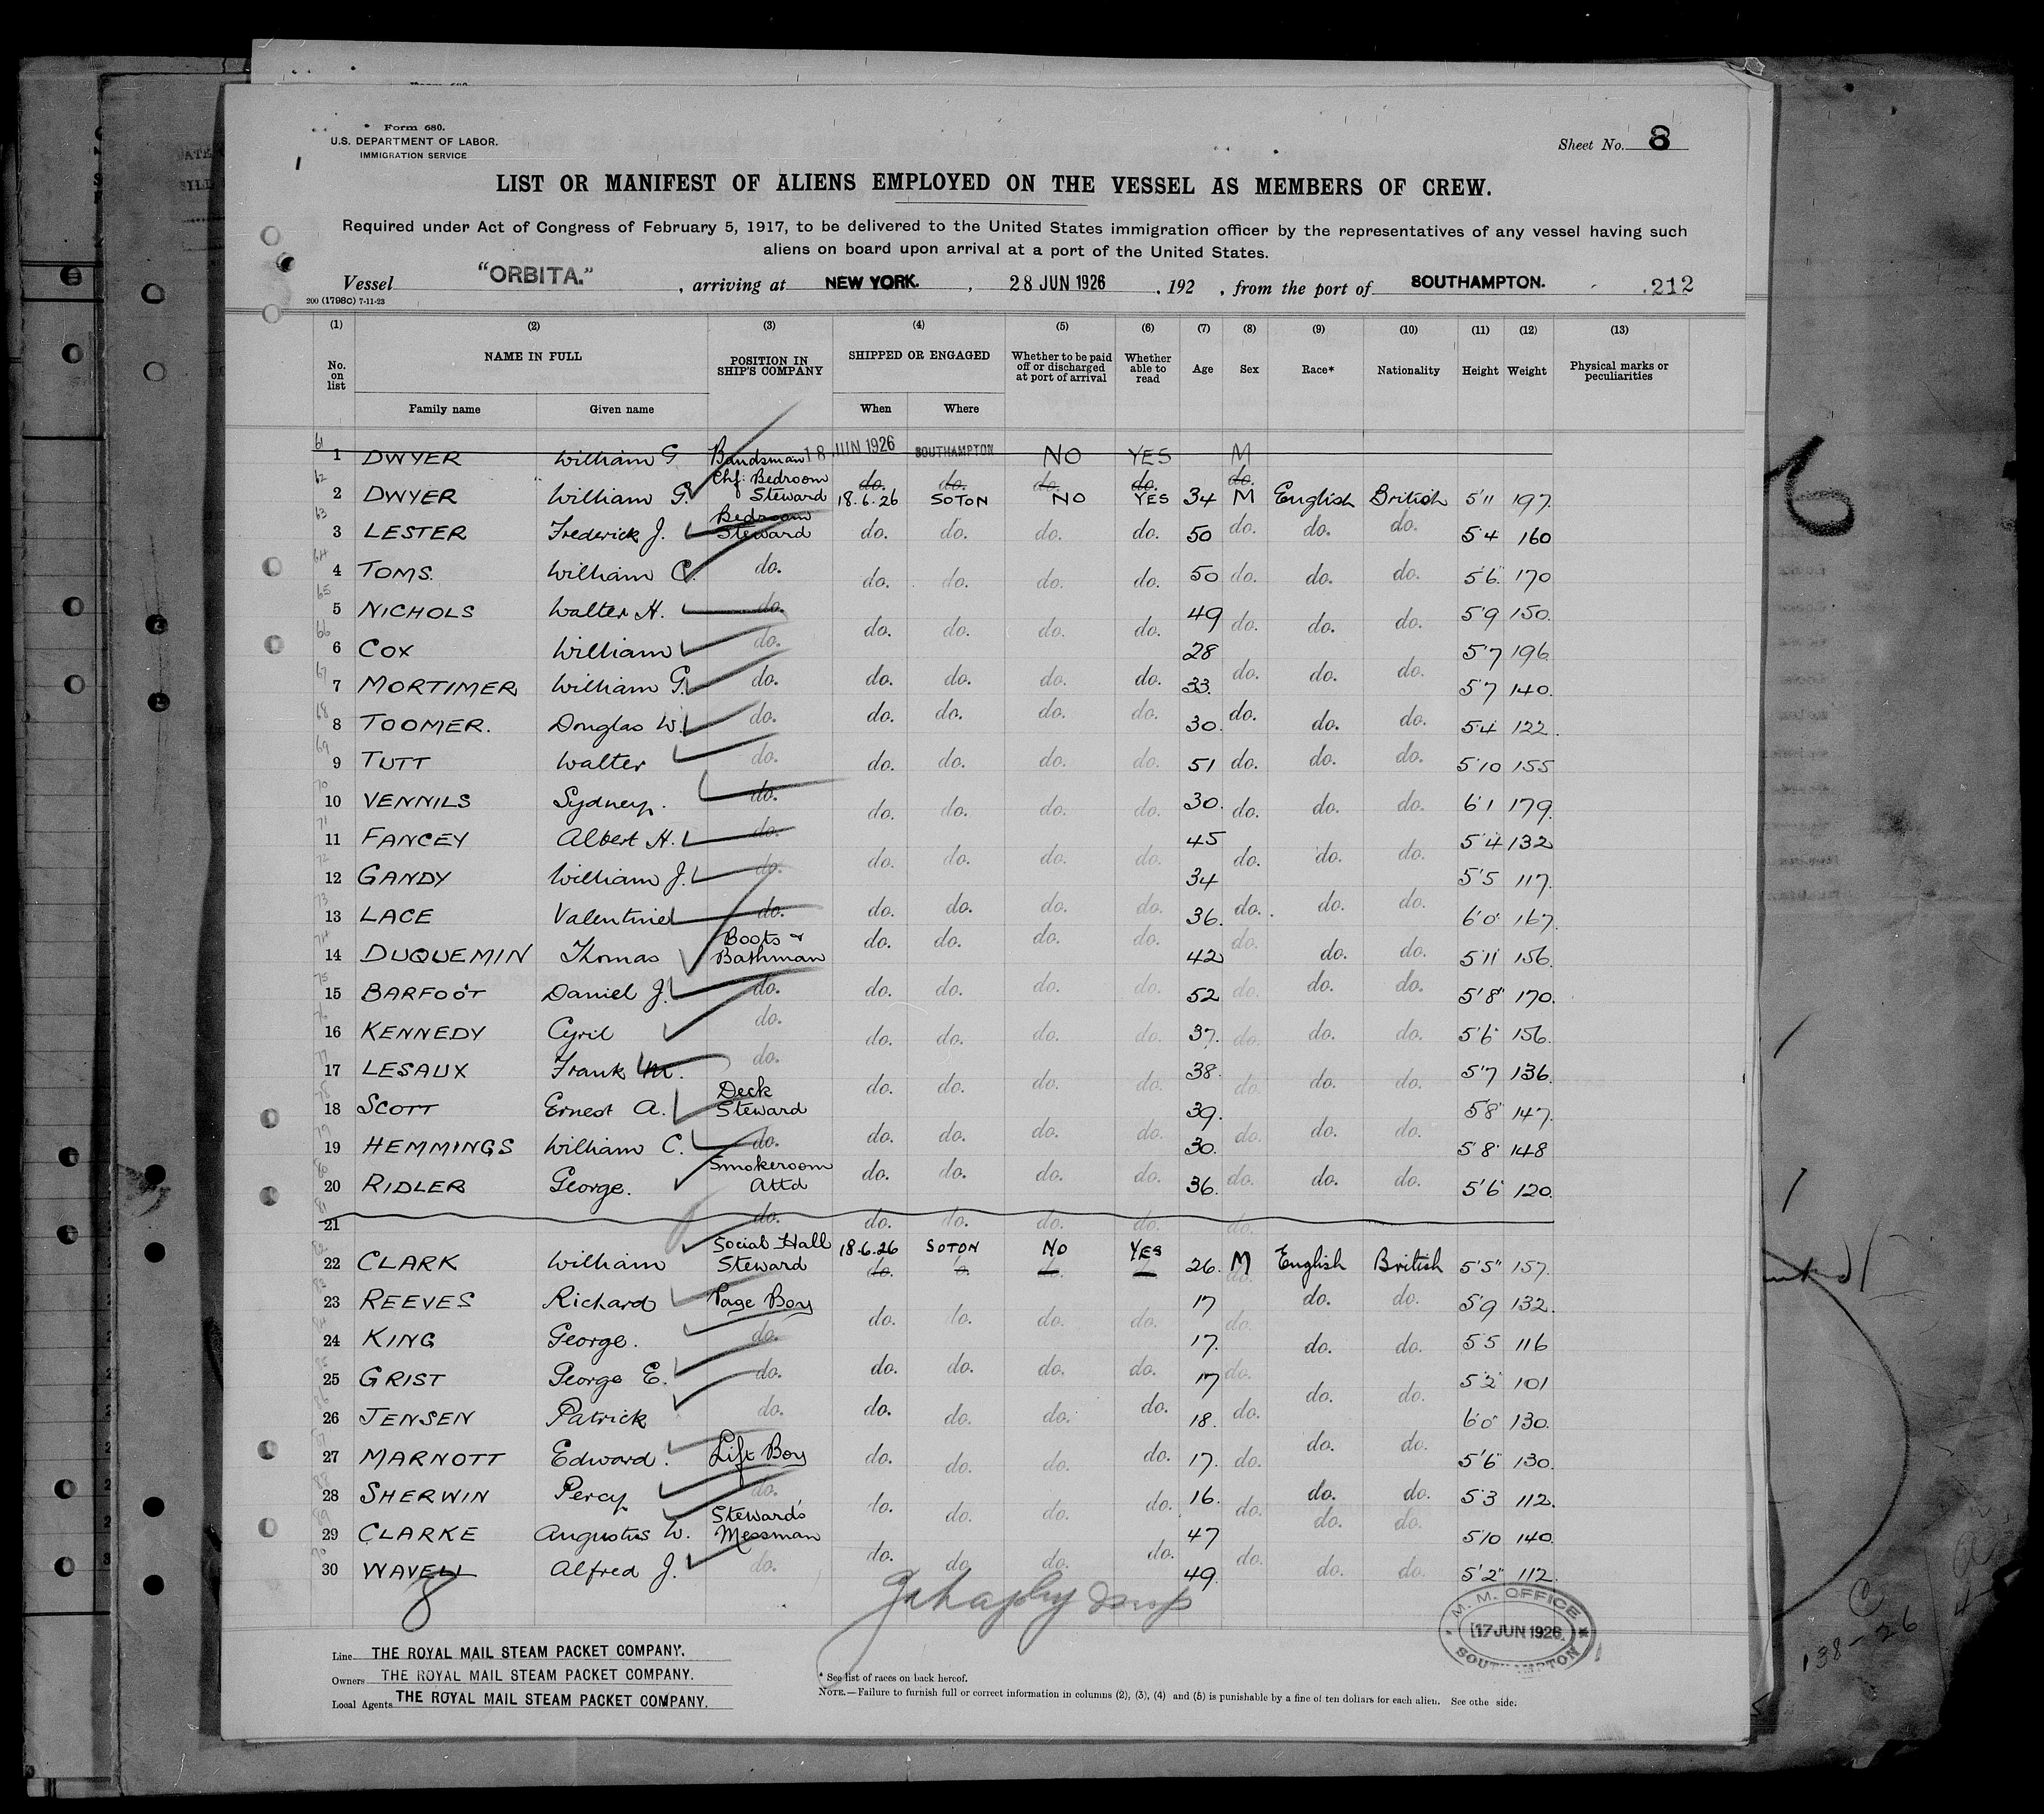 Form 680.
U.S. DEPARTMENT OF LABOR.
IMMIGRATION SERVICE
Sheet No. 8
LIST OR MANIFEST OF ALIENS EMPLOYED ON THE VESSEL AS MEMBERS OF CREW.
Required under Act of Congress of February 5, 1917, to be delivered to the United States immigration officer by the representatives of any vessel having such
aliens on board upon arrival at a port of the United States.
Vessel "ORBITA." , arriving at NEW YORK. , 28 JUN 1926 , 192 , from the port of SOUTHAMPTON. .212
200 (1798C) 7-11-23
(1) (2) (3) (4) (5) (6) (7) (8) (9) (10) (11) (12) (13)
No. on list NAME IN FULL POSITION IN SHIP'S COMPANY SHIPPED OR ENGAGED Whether to be paid off or discharged at port of arrival Whether able to read Age Sex Race* Nationality Height Weight Physical marks or peculiarities
Family name Given name When Where
61 1 DWYER William G Bandsman 18 JUN 1926 SOUTHAMPTON NO YES M
do. do. do. do. do.
62 2 DWYER William G. Chf: Bedroom Steward 18.6.26 SOTON NO YES 34 M English British 5'11 197.
63 3 LESTER Frederick J. Bedroom Steward do. do. do. do. 50 do. do. do. 5'4 160
64 4 TOMS. William C. do. do. do. do. do. 50 do. do. do. 5'6 170
65 5 NICHOLS Walter H. do. do. do. do. do. 49 do. do. do. 5'9 150.
66 6 COX William do. 28 5'7 196
67 7 MORTIMER William G. do. do. do. do. do. 33. do. do. do. 5'7 140.
68 8 TOOMER. Douglas W. do. do. do. do. do. 30. do. do. do. 5'4 122.
69 9 TUTT Walter do. do. do. do. do. 51 do. do. do. 5'10 155
70 10 VENNILS Sydney. do. do. do. do. do. 30. do. do. do. 6'1 179.
71 11 FANCEY Albert H. do. 45 5'4 132
72 12 GANDY William J. do. do. do. do. do. 34 do. do. do. 5'5 117.
73 13 LACE Valentine do. do. do. do. do. 36. do. do. do. 6'0 167.
74 14 DUQUEMIN Thomas Boots & Bathman do. do. do. do. 42 do. do. do. 5'11 156.
75 15 BARFOOT Daniel J. do. do. do. do. do. 52 do. do. do. 5'8" 170.
76 16 KENNEDY Cyril do. do. do. do. do. 37. do. do. do. 5'6 156.
77 17 LESAUX Frank M. do. do. do. do. do. 38. do. do. do. 5'7 136.
78 18 SCOTT Ernest A. Deck Steward 39. 5'8" 147.
79 19 HEMMINGS William C. do. do. do. do. do. 30. do. do. do. 5'8" 148
80 20 RIDLER George. Smokeroom Attd do. do. do. do. 36. do. do. do. 5'6" 120.
81 21 do. do. do. do. do. do.
82 22 CLARK William Social Hall Steward 18.6.26 SOTON NO YES 26. M English British 5'5" 157.
do. do.
83 23 REEVES Richard Page Boy do. do. do. do. 17 do. do. do. 5'9 132.
84 24 KING George. do. 17. do. do. 5'5 116
85 25 GRIST George E. do. do. do. do. do. 17 do. do. do. 5'2 101
86 26 JENSEN Patrick do. do. do. do. do. 18. do. 6'0" 130.
87 27 MARNOTT Edward. Lift Boy do. do. do. do. 17. do. do. do. 5'6" 130.
88 28 SHERWIN Percy do. do. do. do. do. 16. do. do. do. 5'3 112.
89 29 CLARKE Augustus W. Steward's Messman 47 do. do. 5'10 140.
90 30 WAVELL Alfred J. do. do. do. do. do. 49. do. do. do. 5'2" 112.
8
M. M. OFFICE
17 JUN 1926
SOUTHAMPTON
Line THE ROYAL MAIL STEAM PACKET COMPANY.
Owners THE ROYAL MAIL STEAM PACKET COMPANY.
Local Agents THE ROYAL MAIL STEAM PACKET COMPANY.
* See list of races on back hereof.
NOTE.—Failure to furnish full or correct information in columns (2), (3), (4) and (5) is punishable by a fine of ten dollars for each alien. See othe side.
6
138-26